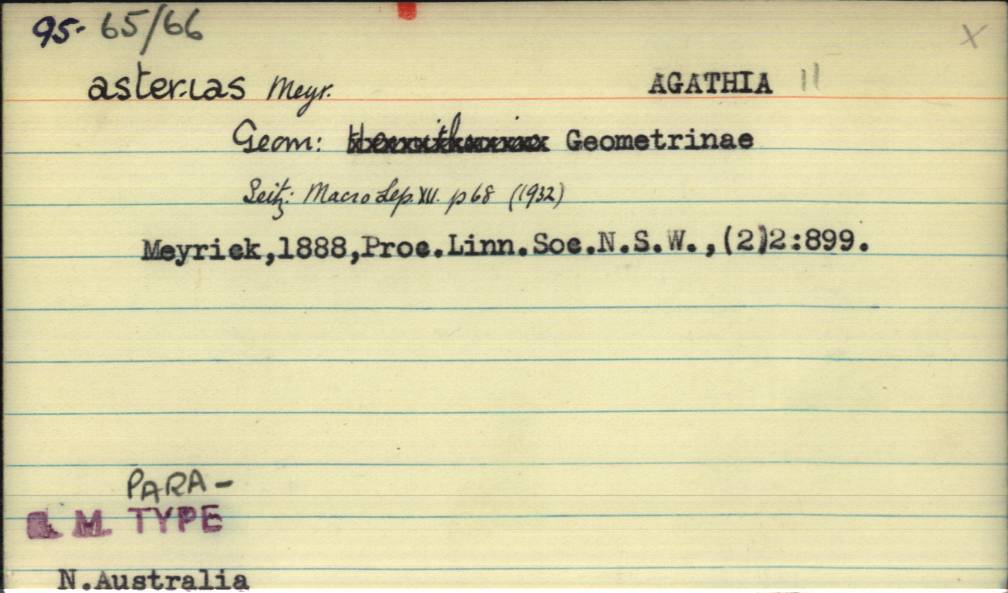 95. 65/66 X
asterias Meyr. AGATHIA 11
Geom: Geometrinae
Seitz: Macro Lep. XII. p 68 (1932)
Meyrick,1888,Proc.Linn.Soc.N.S.W.,(2)2:899.
PARA-
B. M. TYPE
N.Australia